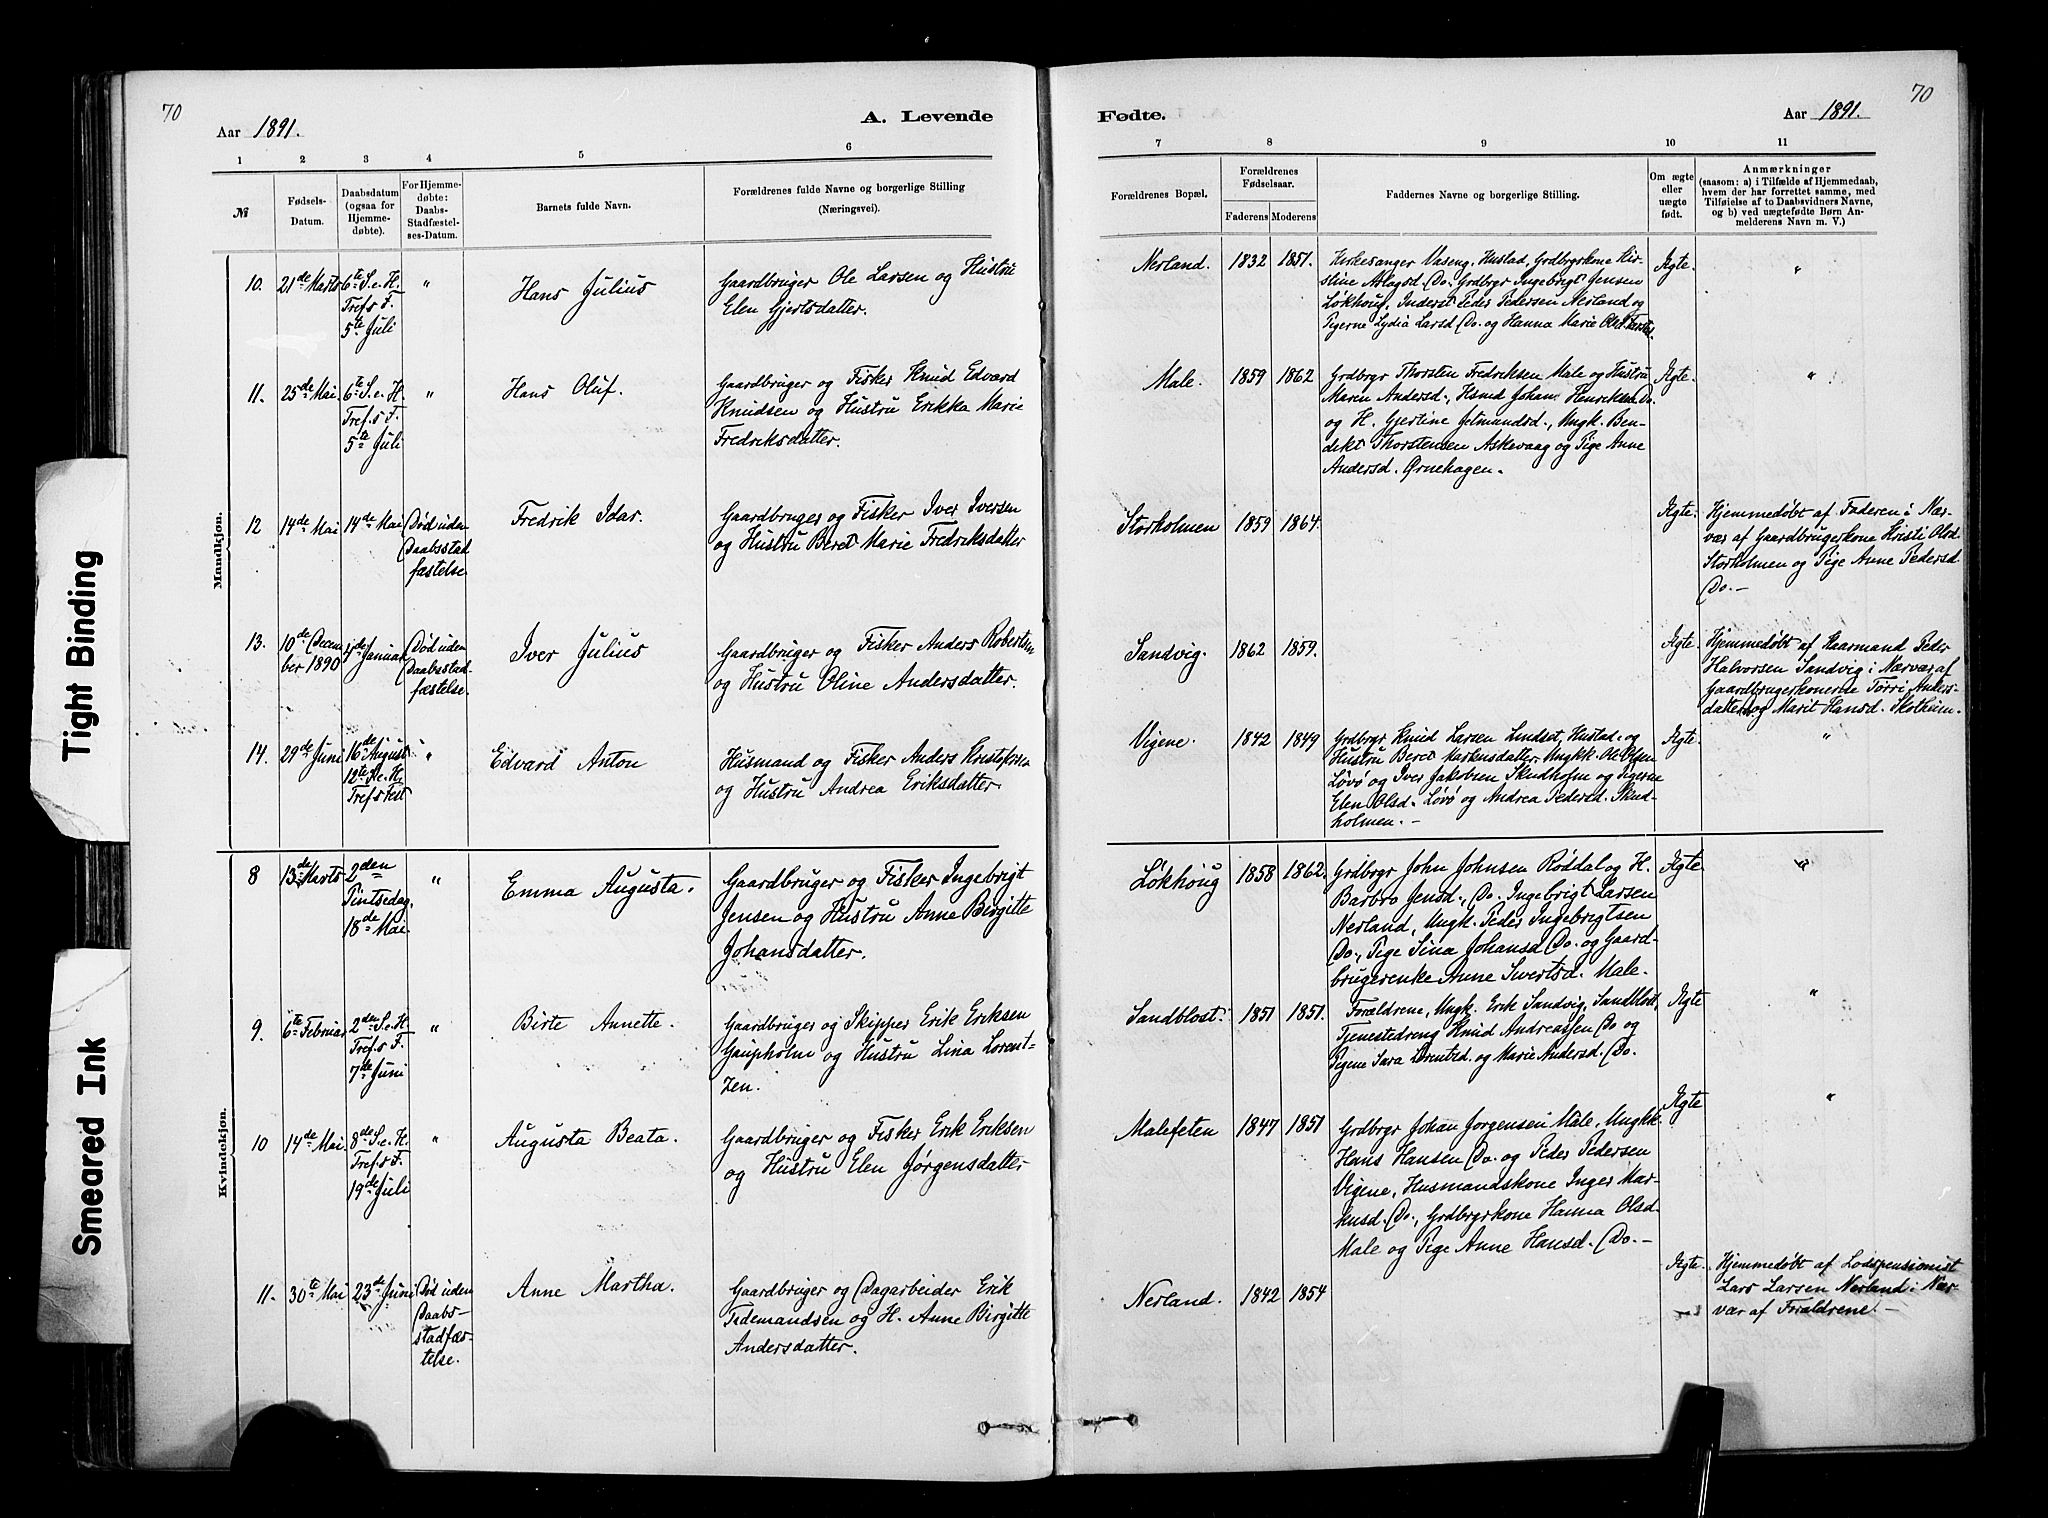 70
Aar 1891.
A. Levende
1 2 3 4 5 6
№
Fødsels-
Datum.
Daabsdatum
(ogsaa for
Hjemme-
døbte).
For Hjemme-
døbte:
Daabs-
Stadfæstel-
ses-Datum.
Barnets fulde Navn.
Forældrenes fulde Navne og borgerlige Stilling
(Næringsvei).
Mandkjøn.
10.
21de Marts
6te S. e. H.
Tref.s F.
5te Juli
"
Hans Julius
Gaardbruger Ole Larsen og Hustru
Elen Gjertsdatter.
11.
25de Mai.
6te S. e. H.
Tref.s F.
5te Juli
"
Hans Oluf.
Gaardbruger og Fisker Knud Edvard
Knudsen og Hustru Erikka Marie
Fredriksdatter.
12
14de Mai
14de Mai
Død uden
Daabsstad
fæstelse
Fredrik Idar.
Gaardbruger og Fisker Iver Iversen
og Hustru Beret Marie Fredriksdatter
13.
10de Decem
ber 1890
Januar
Død uden
Daabsstad
fæstelse.
Iver Julius
Gaardbruger og Fisker Anders Robertsen
og Hustru Oline Andersdatter.
14.
29de Juni
16de August
12te S. e. H.
Tref.s Fest
"
Edvard Anton
Husmand og Fisker Anders Kristofersen
og Hustru Andrea Eriksdatter.
Kvindekjøn.
8
13de Marts
2den
Pintsedag,
18de Mai.
"
Emma Augusta.
Gaardbruger og Fisker Ingebrigt
Jensen og Hustru Anne Birgitte
Johansdatter.
9.
6te Februar
2den S. e. H.
Tref.s F.
7de Juni
"
Birte Annette.
Gaardbruger og Skipper Erik Eriksen
Gaupholm og Hustru Lina Lorent-
zen.
10
14de Mai.
8de S. e. H.
Tref.s F.
19de Juli
"
Augusta Beata.
Gaardbruger og Fisker Erik Eriksen
og Hustru Elen Jørgensdatter
11.
30te Mai
23de Juni
Død uden
Daabs-
stadfæs-
telse.
Anne Martha.
Gaardbruger og Dagarbeider Erik
Tedemandsen og H. Anne Birgitte
Andersdatter.
Fødte.
Aar 1891.
70
7 8 9 10 11
Forældrenes Bopæl.
Forældrenes
Fødselsaar.
Faderens Moderens
Faddernes Navne og borgerlige Stilling.
Om ægte
eller
uægte
født.
Anmærkninger
(saasom: a) i Tilfælde af Hjemmedaab,
hvem der har forrettet samme, med
Tilføielse af to Daabsvidners Navne,
og b) ved uægtefødte Børn An-
melderens Navn m. V.)
Nerland. 1832 1851.
Kirkesanger Vaseng, Hustad, Grdbrgrkone Kir-
stine Aslagsd. Do. Grdbrgr Ingebrigt Jensen
Løkhoug, Inderst Peder Pedersen Nerland og
Pigerne Lydia Larsd. Do. og Hanna Marie Olsd.
Ægte.
"
Male. 1859 1862
Grdbrgr Thorsten Fredriksen Male og Hustru
Maren Andersd., Hsmd Johan Henriksen Do.
og H. Gjertine Jetmundsd., Ungk. Ben-
dikt Thorstensen Askevaag og Pige Anne
Andersd. Ørnehagen.
Ægte.
"
Storholmen 1859 1864.
Ægte.
Hjemmedøbt af Faderen i Nær-
vær af Gaardbrugerkone Kristi Olsd.
Storholmen og Pige Anne Pedersd.
Do.
Sandvig. 1862 1859.
Ægte.
Hjemmedøbt af Kaarmand Peder
Halvorsen Sandvig i Nærvær af
Gaardbrugerkonerne Torri Anders-
datter og Marit Hansd. Skotheim.
Vigene. 1842 1849
Grdbrgr Knud Larsen Lindset, Hustad. og
Hustru Beret Markusdatter. Ungkk. Ole Olsen
Løvø og Iver Jakobsen Skudholm og Pigerne
Elen Olsd. Løvø og Andrea Pedersd. Skud-
holmen.
Ægte.
"
Løkhoug 1858 1862.
Grdbrgr John Johnsen Røddal og H.
Barbro Jensd., Do. Ingebrigt Larsen
Nerland, Ungk. Peder Ingebrigtsen
Do., Pige Sina Johansd. Do. og Gaard-
brugerenke Anne Sivertsd. Male.
Ægte
"
Sandblost. 1851 1851.
Forældrene, Ungk. Erik Sandvig, Sandblost,
Tjenestedreng Knud Andreassen Do og
Pigene Sara Lorentsd. og Marie Andersd. Do.
Ægte
"
Malefeten 1847 1851
Grdbrgr Johan Jorgensen Male, Ungkk.
Hans Hansen Do. og Peder Pedersen
Vigene, Husmandskone Inger Mar-
kusd. Do., Grdbrgrkone Hanna Olsd.
Male og Pige Anne Hansd. Do.
Ægte
"
Nerland. 1842 1854
Ægte.
Hjemmedøbt af Lodspensionist
Lars Larsen Nerland i Nær-
vær af Forældrene.
Tight Binding
Smeared Ink